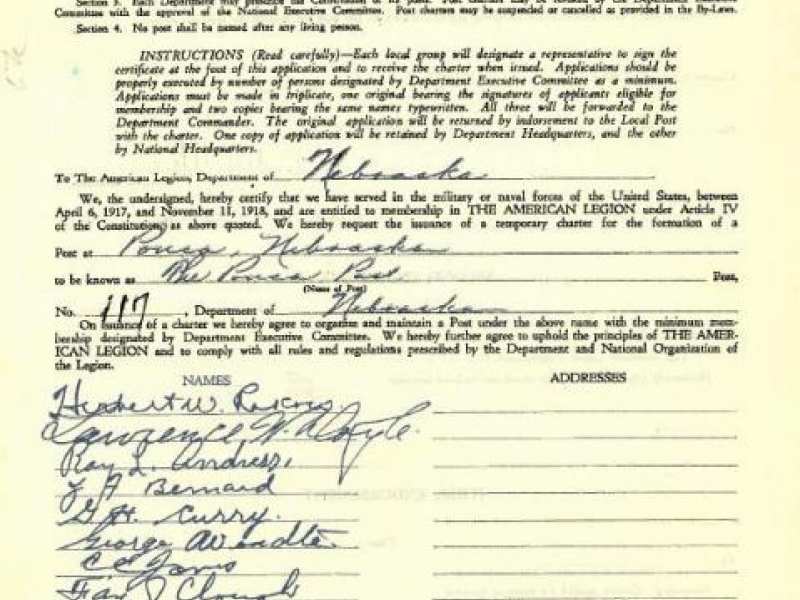 Committee with the approval of the National Executive Committee. Post charters may be suspended or cancelled as provided in the By-Laws.
Section 4. No post shall be named after any living person.
INSTRUCTIONS (Read carefully)—Each local group will designate a representative to sign the
certificate at the foot of this application and to receive the charter when issued. Applications should be
properly executed by number of persons designated by Department Executive Committee as a minimum.
Applications must be made in triplicate, one original bearing the signatures of applicants eligible for
membership and two copies bearing the same names typewritten. All three will be forwarded to the
Department Commander. The original application will be returned by indorsement to the Local Post
with the charter. One copy of application will be retained by Department Headquarters, and the other
by National Headquarters.
To The American Legion, Department of Nebraska
We, the undersigned, hereby certify that we have served in the military or naval forces of the United States, between
April 6, 1917, and November 11, 1918, and are entitled to membership in THE AMERICAN LEGION under Article IV
of the Constitution as above quoted. We hereby request the issuance of a temporary charter for the formation of a
Post at Ponca, Nebraska
to be known as The Ponca Post Post,
(Name of Post)
No. 117, Department of Nebraska
On issuance of a charter we hereby agree to organize and maintain a Post under the above name with the minimum mem-
bership designated by Department Executive Committee. We hereby further agree to uphold the principles of THE AMER-
ICAN LEGION and to comply with all rules and regulations prescribed by the Department and National Organization of
the Legion.
NAMES ADDRESSES
Herbert W.
Lawrence W. Doyle.
Ray L. Andress,
Bernard
G. H. Curry.
George Awendte.
Clough